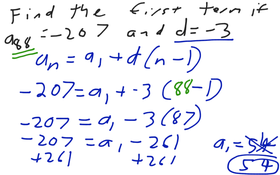 Find the first term if
a₈₈ = -207 and d = -3
aₙ = a₁ + d(n-1)
-207 = a₁ + -3(88-1)
-207 = a₁ - 3(87)
-207 = a₁ - 261
+261 +261
a₁ = 54
54